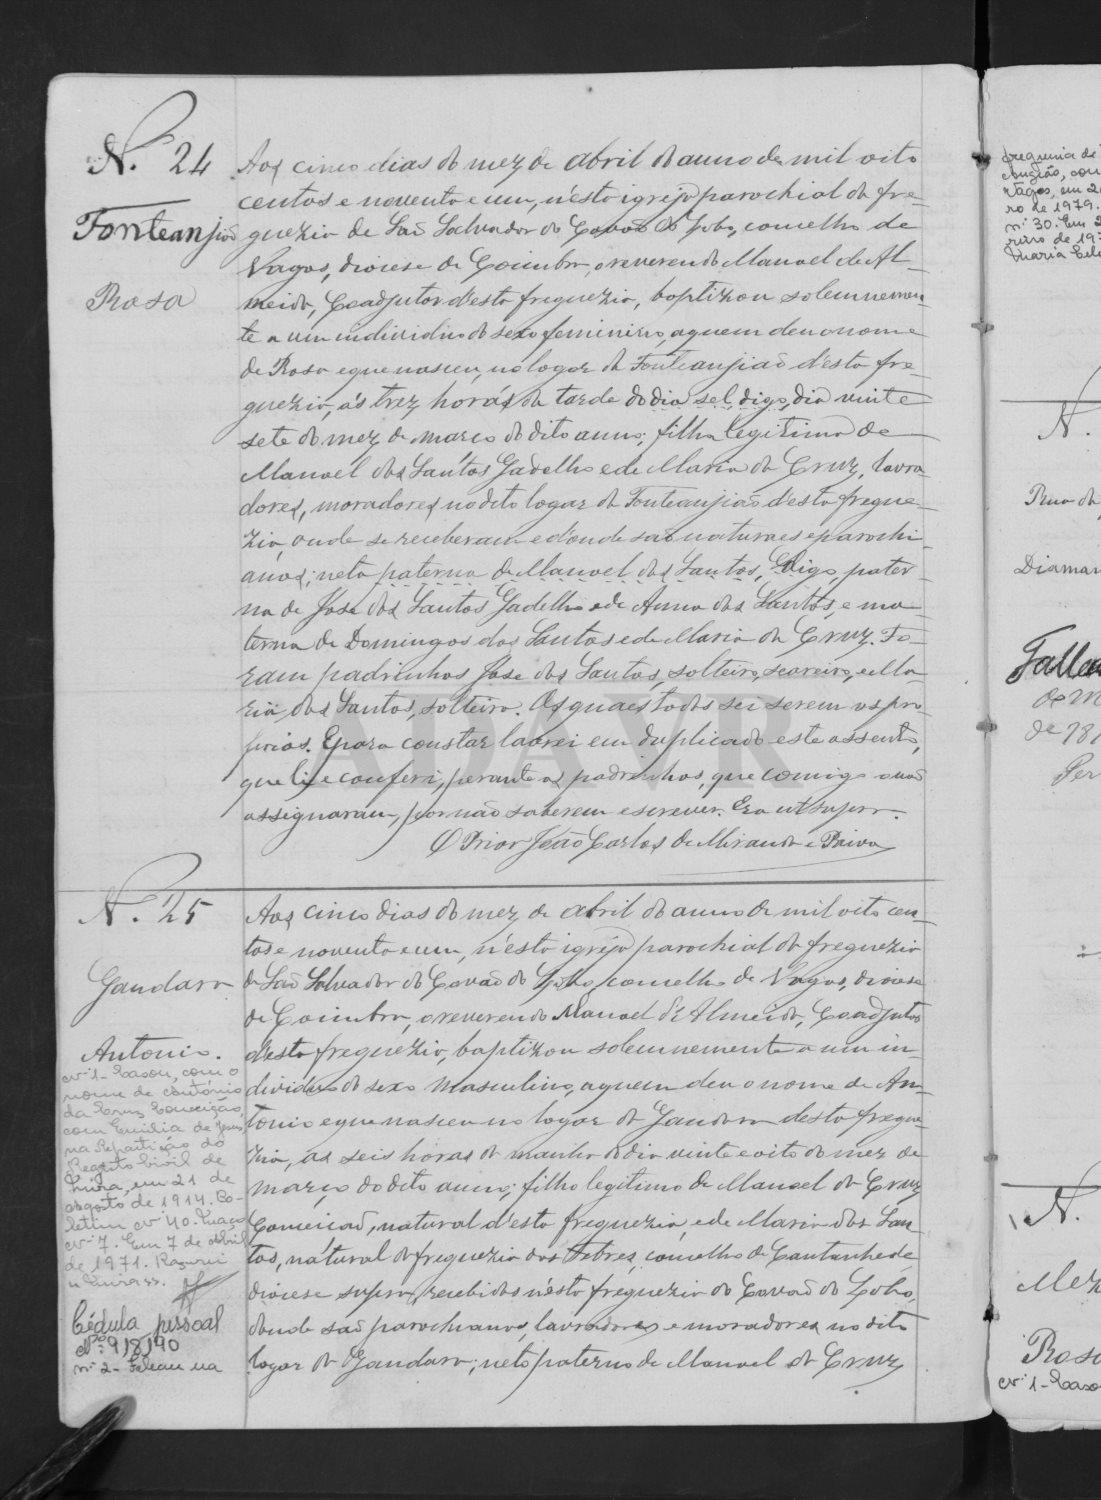 N. 24
Fonteanjião
Rosa
Aos cinco dias do mez de abril do anno de mil oito
centos e noventa e um, n'esta igreja parochial da fre-
guezia de São Salvador do Covão do Lobo, concelho de
Vagos, diocese de Coimbra, o reverendo Manoel de Al-
meida, Coadjutor d'esta freguezia, baptizou solemnemen-
te a um individuo do sexo feminino, a quem deu o nome
de Rosa e que nasceu, no logar da Fonteanjião d'esta fre-
guezia, ás trez horas da tarde do dia set, digo, dia vinte
sete do mez de março do dito anno; filha legitima de
Manoel dos Santos Gadelho e de Maria da Cruz, lavra-
dores, moradores no dito logar da Fonteanjião d'esta fregue-
zia, onde se receberam e d'onde são naturaes e parochi-
anos; neta paterna de Manoel dos Santos, Digo, pater-
na de José dos Santos Gadelho e de Anna dos Santos, e ma-
terna de Domingos dos Santos e de Maria da Cruz. Fo-
ram padrinhos José dos Santos, solteiro, seareiro, e Ma-
ria dos Santos, solteira. Os quaes todos sei serem os pro-
prios. E para constar lavrei em duplicado este assento,
que li e conferi, perante os padrinhos, que comigo não
assignaram, por não saberem escrever. Era ut supra.
O Prior João Carlos de Miranda e Paiva
N. 25
Gandara
Antonio.
Nº 1 - Casou, com o
nome de António
da Cruz Conceição,
com Emilia de Jesus,
na Repartição do
Registo Civil de
Mira, em 21 de
agosto de 1914. Bo-
letim nº 40. Maço
nº 7. Em 7 de abril
de 1971.
Cédula pessoal
Nº 918190
nº 2 - Faleceu na
Aos cinco dias do mez de abril do anno de mil oito cen-
tos e noventa e um, n'esta igreja parochial da freguezia
de São Salvador do Covão do Lobo, concelho de Vagos, diocese
de Coimbra, o reverendo Manoel d'Almeida, Coadjutor
d'esta freguezia, baptizou solemnemente a um in-
dividuo do sexo masculino, a quem deu o nome de An-
tonio e que nasceu no logar da Gandara desta fregue-
zia, as seis horas da manhã do dia vinte e oito do mez de
março do dito anno; filho legitimo de Manoel da Cruz
Conceicão, natural d'esta freguezia, e de Maria dos San-
tos, natural da freguezia das Febres, concelho de Cantanhede
diocese supra, recebidos n'esta freguezia do Covão do Lobo,
donde são parochianos, lavradores e moradores no dito
logar da Gandara; neto paterno de Manoel da Cruz
ADAVR
ro de 1979.
nº 30. Em 2
N.
Rua da
Diaman
Fallec
de 191
N.
Rosa
nº 1 - Caso